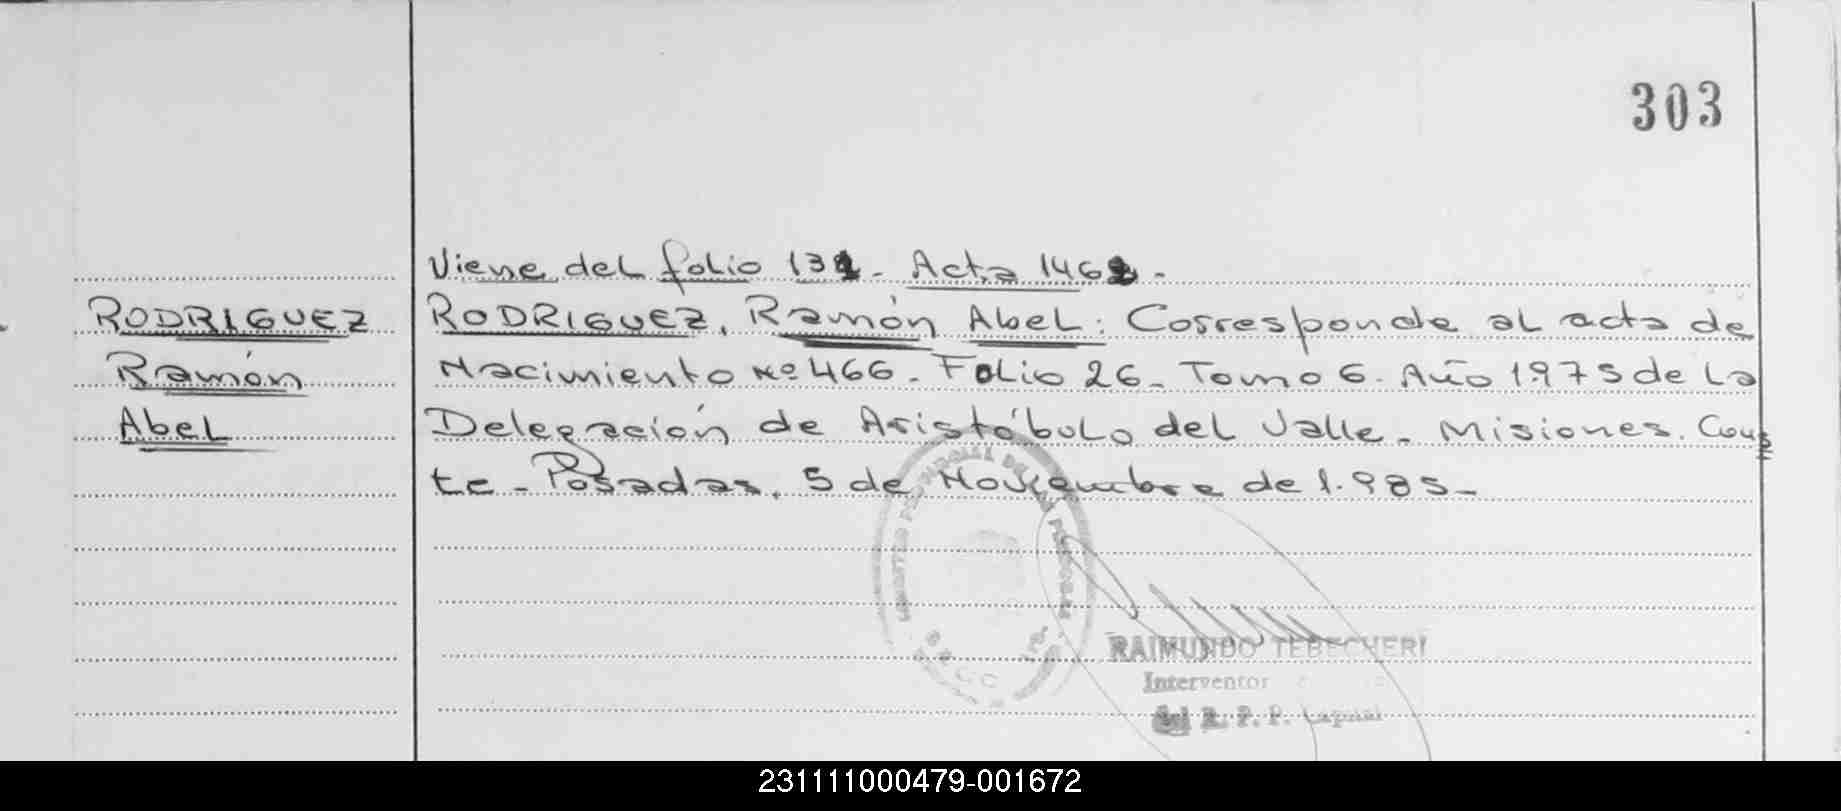 303
Viene del folio 131. Acta 1462.
RODRIGUEZ
Ramón
Abel
RODRIGUEZ, Ramón Abel: Corresponde al acta de
Nacimiento Nº 466. Folio 26. Tomo 6. Año 1975 de la
Delegación de Aristóbulo del Valle. Misiones. Cons
te. Posadas, 5 de Noviembre de 1.985.
RAIMUNDO TEBECHERI
Interventor
del R. P. P. Capital
231111000479-001672